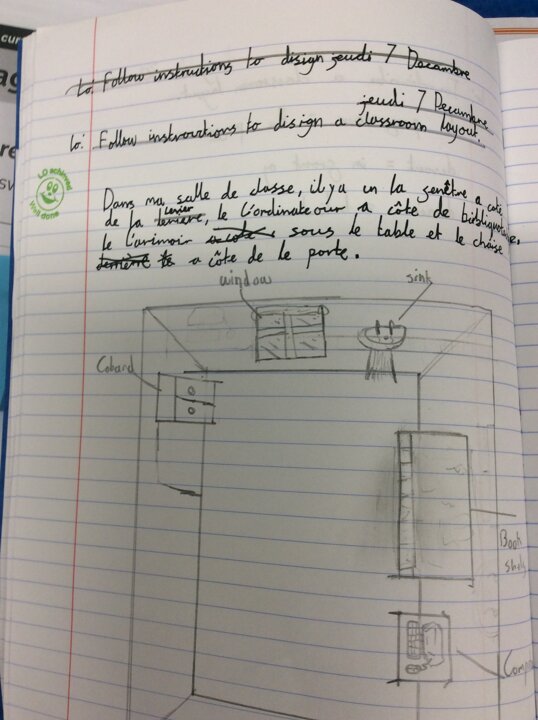 cur
Lo: Follow instructions to disign jeudi 7 Decambre
jeudi 7 Decambre
Lo: Follow instructions to disign a classroom layout.
LO achieved
Well done
Dans ma salle de classe, il y a un la fenêtre a côté
de la levier, le L'ordinateour a côte de
le L'arimoir sous le table et le chaise
a côte de le porte.
window
sink
Cobard
Book
shelf
Comp